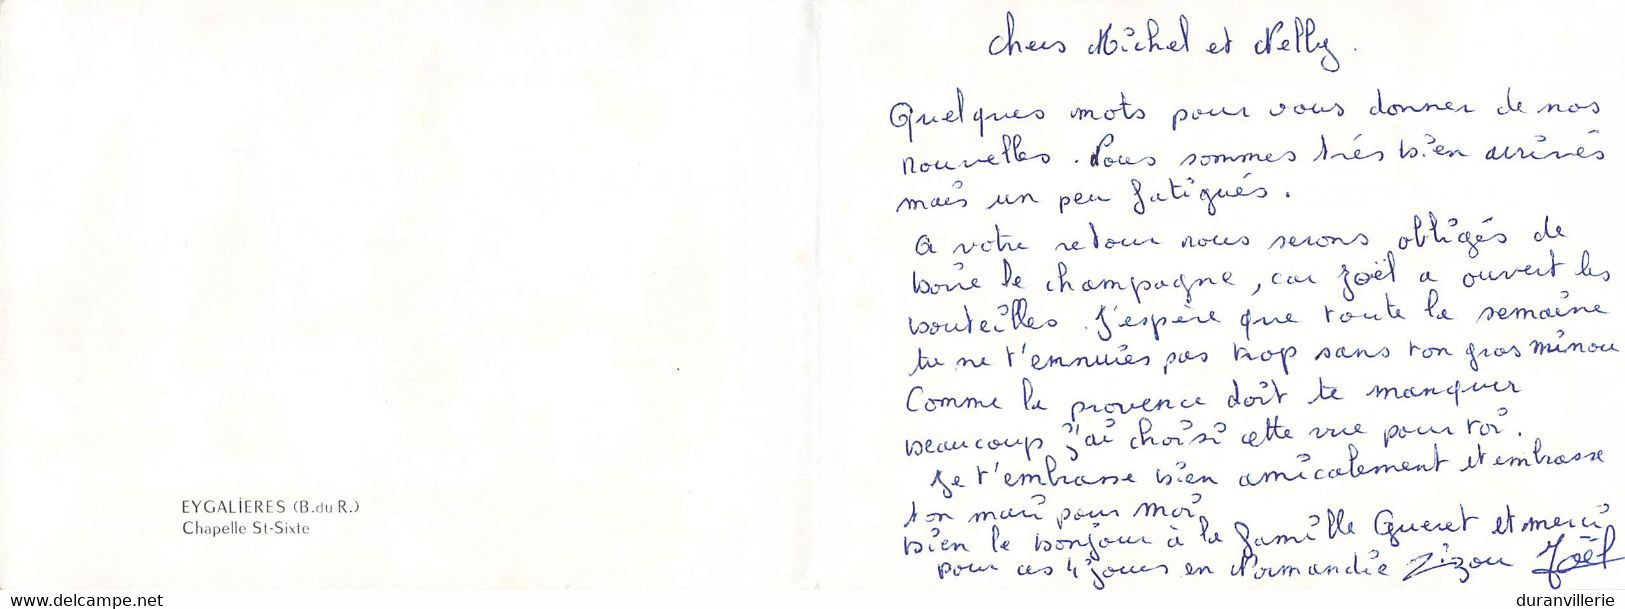 EYGALIÈRES (B.du R.)
Chapelle St-Sixte
Chers Michel et Nelly.
Quelques mots pour vous donner de nos
nouvelles. Nous sommes très bien arrivés
mais un peu fatigués.
A votre retour nous serons obligés de
boire le champagne, car Joël a ouvert les
bouteilles. J'espère que toute la semaine
tu ne t'ennuies pas trop sans ton gros minou
Comme la provence doit te manquer
beaucoup j'ai choisi cette vue pour toi.
Je t'embrasse bien amicalement et embrasse
ton mari pour moi
bien le bonjour à la famille Gueret et merci
pour ces 4 jours en Normandie Zizou Joël
www.delcampe.net
duranvillerie